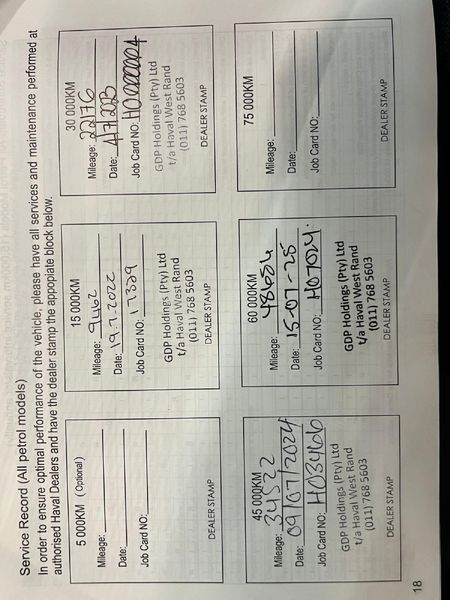 Service Record (All petrol models)
In order to ensure optimal performance of the vehicle, please have all services and maintenance performed at
authorised Haval Dealers and have the dealer stamp the appopiate block below.
5 000KM (Optional)
Mileage:
Date:
Job Card NO:
DEALER STAMP
15 000KM
Mileage: 9462
Date: 19.7.2022
Job Card NO: 17329
GDP Holdings (Pty) Ltd
t/a Haval West Rand
(011) 768 5603
DEALER STAMP
30 000KM
Mileage: 22176
Date: 4/7/2023
Job Card NO:
GDP Holdings (Pty) Ltd
t/a Haval West Rand
(011) 768 5603
DEALER STAMP
45 000KM
Mileage: 34522
Date: 09/07/2024
Job Card NO: H03466
GDP Holdings (Pty) Ltd
t/a Haval West Rand
(011) 768 5603
DEALER STAMP
60 000KM
Mileage: 48684
Date: 15-07-25
Job Card NO: H07024.
GDP Holdings (Pty) Ltd
t/a Haval West Rand
(011) 768 5603
DEALER STAMP
75 000KM
Mileage:
Date:
Job Card NO:
DEALER STAMP
18